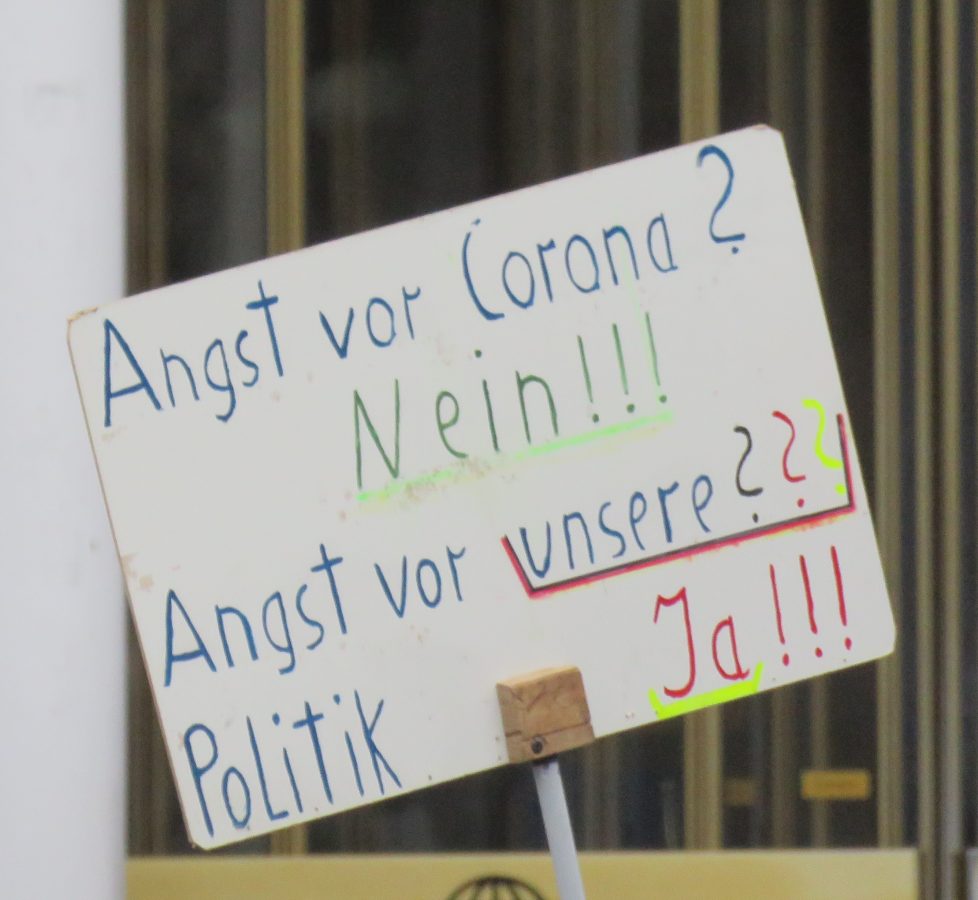 Angst vor Corona?
Nein!!!
Angst vor unsere???
Politik Ja!!!